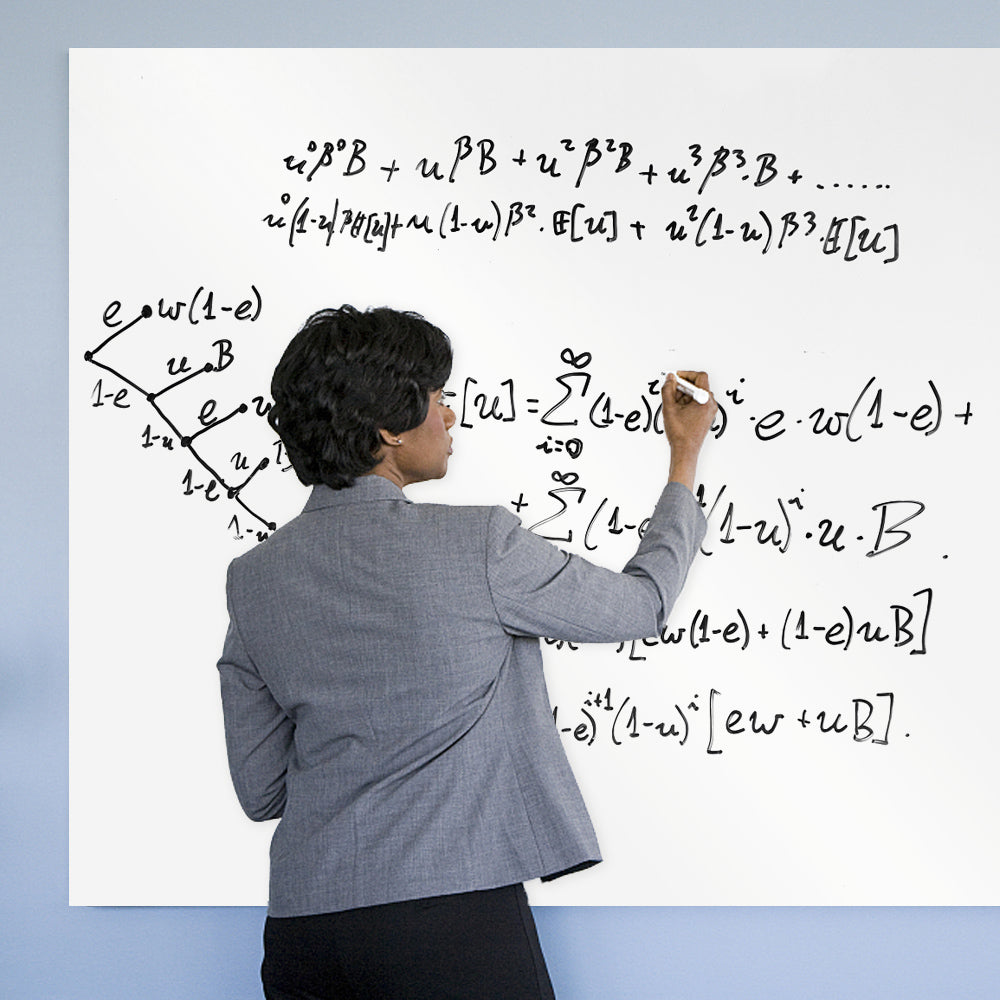 u⁰β⁰B + uβB + u²β²B + u³β³·B + ......
u⁰(1-u)βE[u] + u(1-u)β²·E[u] + u²(1-u)β³·E[u]
e w(1-e)
u B
1-e
e
1-u
u
1-e
1-u
[u] = ∞ Σ i=0 (1-e) i ·e·w(1-e) +
+ ∞ Σ (1-e (1-u)ⁱ·u·B .
[ew(1-e) + (1-e)uB]
-e)ⁱ⁺¹(1-u)ⁱ[ew + uB].